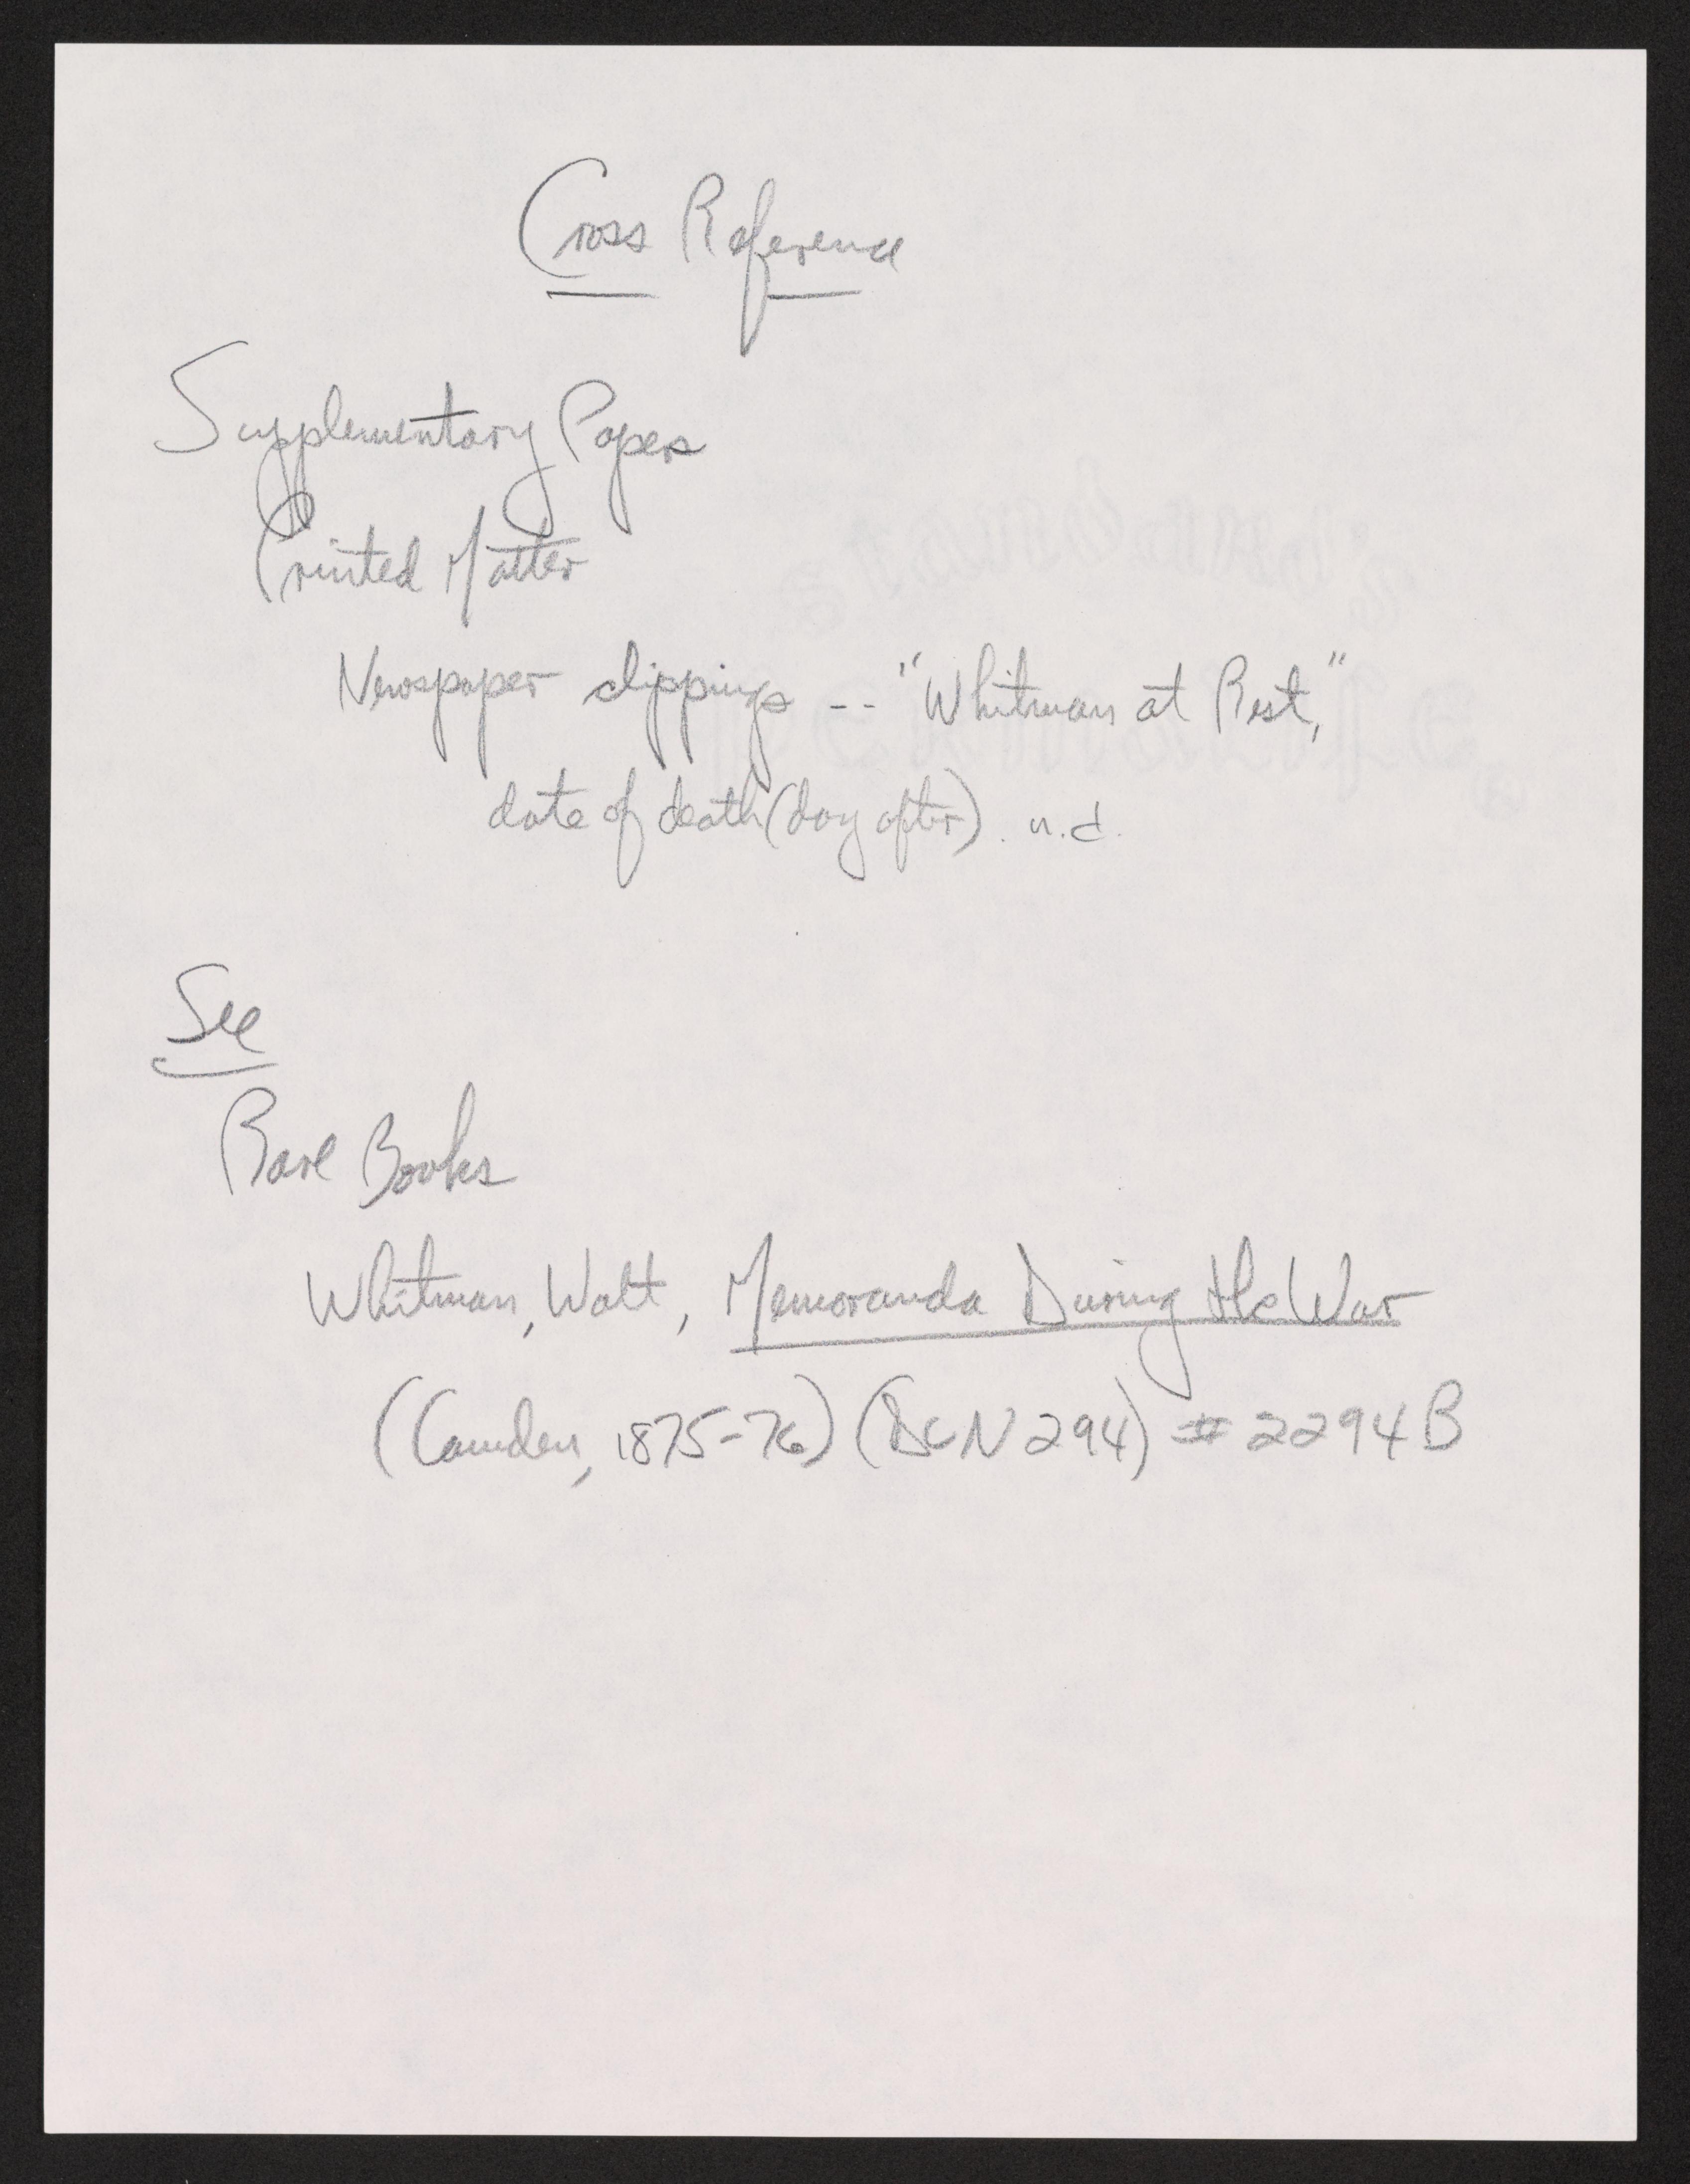 Cross Reference
Supplementary Papers
Printed Matter
Newspaper clippings -- "Whitman at Rest,"
date of death (day after). n.d.
See
Rare Books
Whitman, Walt, Memoranda During the War
(Camden, 1875-76) (DCN 294) # 2294B